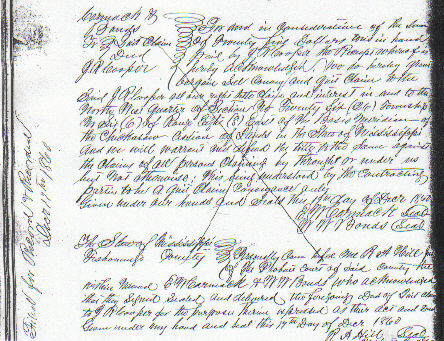 Carmack &
Bonds
To Quit Claim
Deed
J R Cooper
For and in Consideration of the Sum
of Twenty five Dollars in hand
paid by J R Cooper the Receipt whereof is
hereby acknowledged we do hereby grant
bargain Sell Convey and Quit Claim to the
Said J R Cooper all our right title Claim and interest in and to the
North West quarter of Section No Twenty Six (26) Township
No Six (6) of Range Eight (8) East of the Basis Meridian of
the Chickasaw Cession of Lands in the State of Mississippi
and we will warrant and defend the title to the Same against
the Claims of all persons Claiming by through or under us
but not otherwise; this being understood by the Contracting
parties to be a Quit Claim Conveyance only
Given under our hands and Seals this 11th Day of Decr 1860
E W Carmack Seal
W W Bonds Seal
The State of Mississippi
Tishomingo County
Personally Came before me R A Hill Judge
of the Probate Court of Said County the
within named E W Carmack & W W Bonds who acknowledged
that they Signed Sealed and delivered the foregoing deed of Quit Claim
to J R Cooper for the purposes therein expressed as their act and deed
Given under my hand and Seal this 11th Day of Decr 1860
R A Hill Seal
Filed for Record & Recorded
Decr 1860